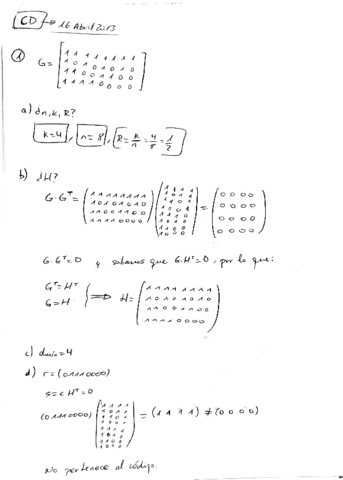 CD → 16 Abril 2013
① G = [1 1 1 1 1 1 1 1
1 0 1 0 1 0 1 0
1 1 0 0 1 1 0 0
1 1 1 1 0 0 0 0]
a) ¿n, k, R?
k=4, n=8, R=k/n=4/8=1/2
b) ¿H?
G·Gᵀ = (1 1 1 1 1 1 1 1
1 0 1 0 1 0 1 0
1 1 0 0 1 1 0 0
1 1 1 1 0 0 0 0) (1 1 1 1
1 0 1 1
1 1 0 1
1 0 0 1
1 1 1 0
1 0 1 0
1 1 0 0
1 0 0 0) = (0 0 0 0
0 0 0 0
0 0 0 0
0 0 0 0)
G·Gᵀ=0 y sabemos que G·Hᵀ=0, por lo que:
Gᵀ=Hᵀ
G=H
⟹ H = (1 1 1 1 1 1 1 1
1 0 1 0 1 0 1 0
1 1 0 0 1 1 0 0
1 1 1 1 0 0 0 0)
c) dmin=4
d) r=(01110000)
s=c Hᵀ=0
(01110000) (1 1 1 1
1 0 1 1
1 1 0 1
1 0 0 1
1 1 1 0
1 0 1 0
1 1 0 0
1 0 0 0) = (1 1 1 1) ≠ (0 0 0 0)
No pertenece al código.